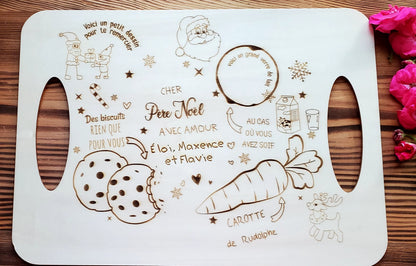 Voici un petit dessin
pour te remercier
Voici un grand verre de lait
CHER
Père Noël
AVEC AMOUR
Éloi, Maxence
et Flavie
Des biscuits
RIEN QUE
POUR VOUS
AU CAS
OÙ VOUS
AVEZ SOIF
CAROTTE
de Rudolphe